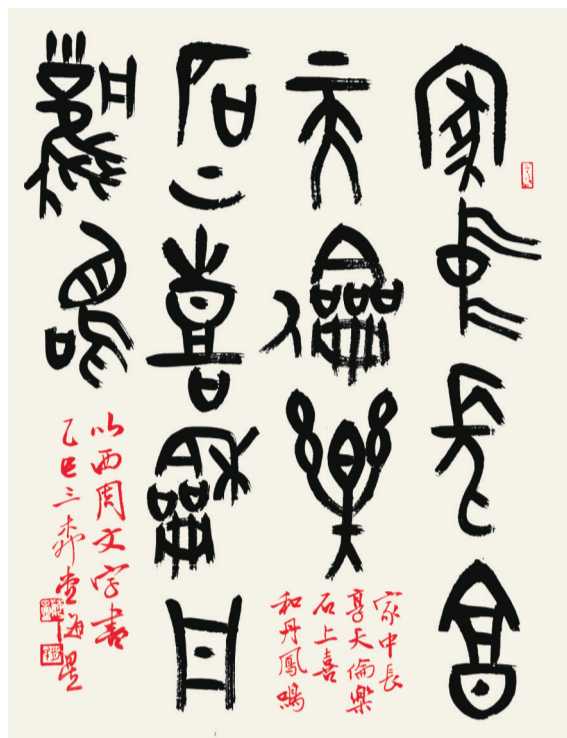 家中長享
天倫樂
石上喜龢丹
鳳鳴
家中長
享天倫樂
石上喜
和丹鳳鳴
以西周文字書
乙巳三堂海